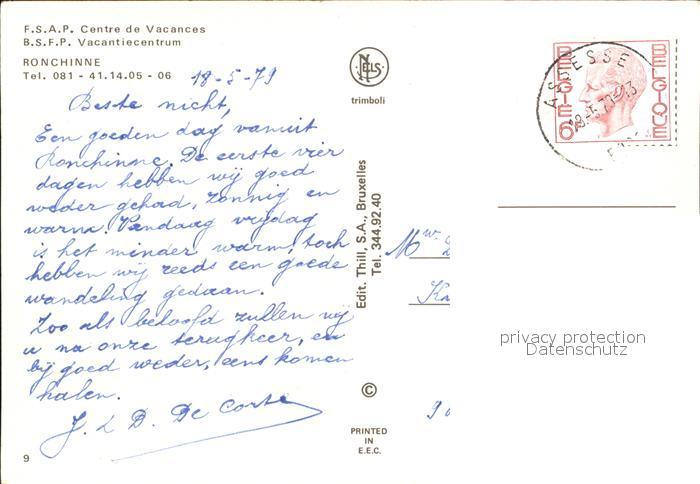 F.S.A.P. Centre de Vacances
B.S.F.P. Vacantiecentrum
RONCHINNE
Tel. 081 - 41.14.05 - 06
18-5-79
Beste nicht,
Een goeden dag vanuit
Ronchinne. De eerste vier
dagen hebben wij goed
weder gehad, zonnig en
warm. Vandaag vrijdag
is het minder warm, toch
hebben wij reeds een goede
wandeling gedaan.
Zoo als beloofd zullen wij
u na onze terugkeer, en
bij goed weder, eens komen
halen.
J. & D. De Corte
9
NELS
trimboli
Edit. Thill, S.A., Bruxelles
Tel. 344.92.40
©
PRINTED
IN
E.E.C.
ASSESSE
BELGIE 6
BELGIQUE
Mw.
privacy protection
Datenschutz